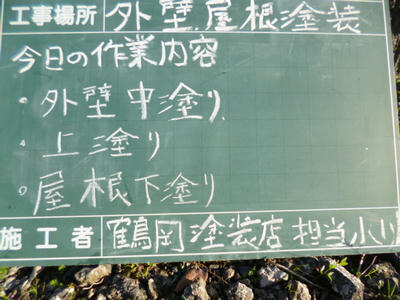 工事場所 外壁屋根塗装
今日の作業内容
・外壁中塗り
・上塗り
・屋根下塗り
施工者 鶴岡塗装店 担当小川